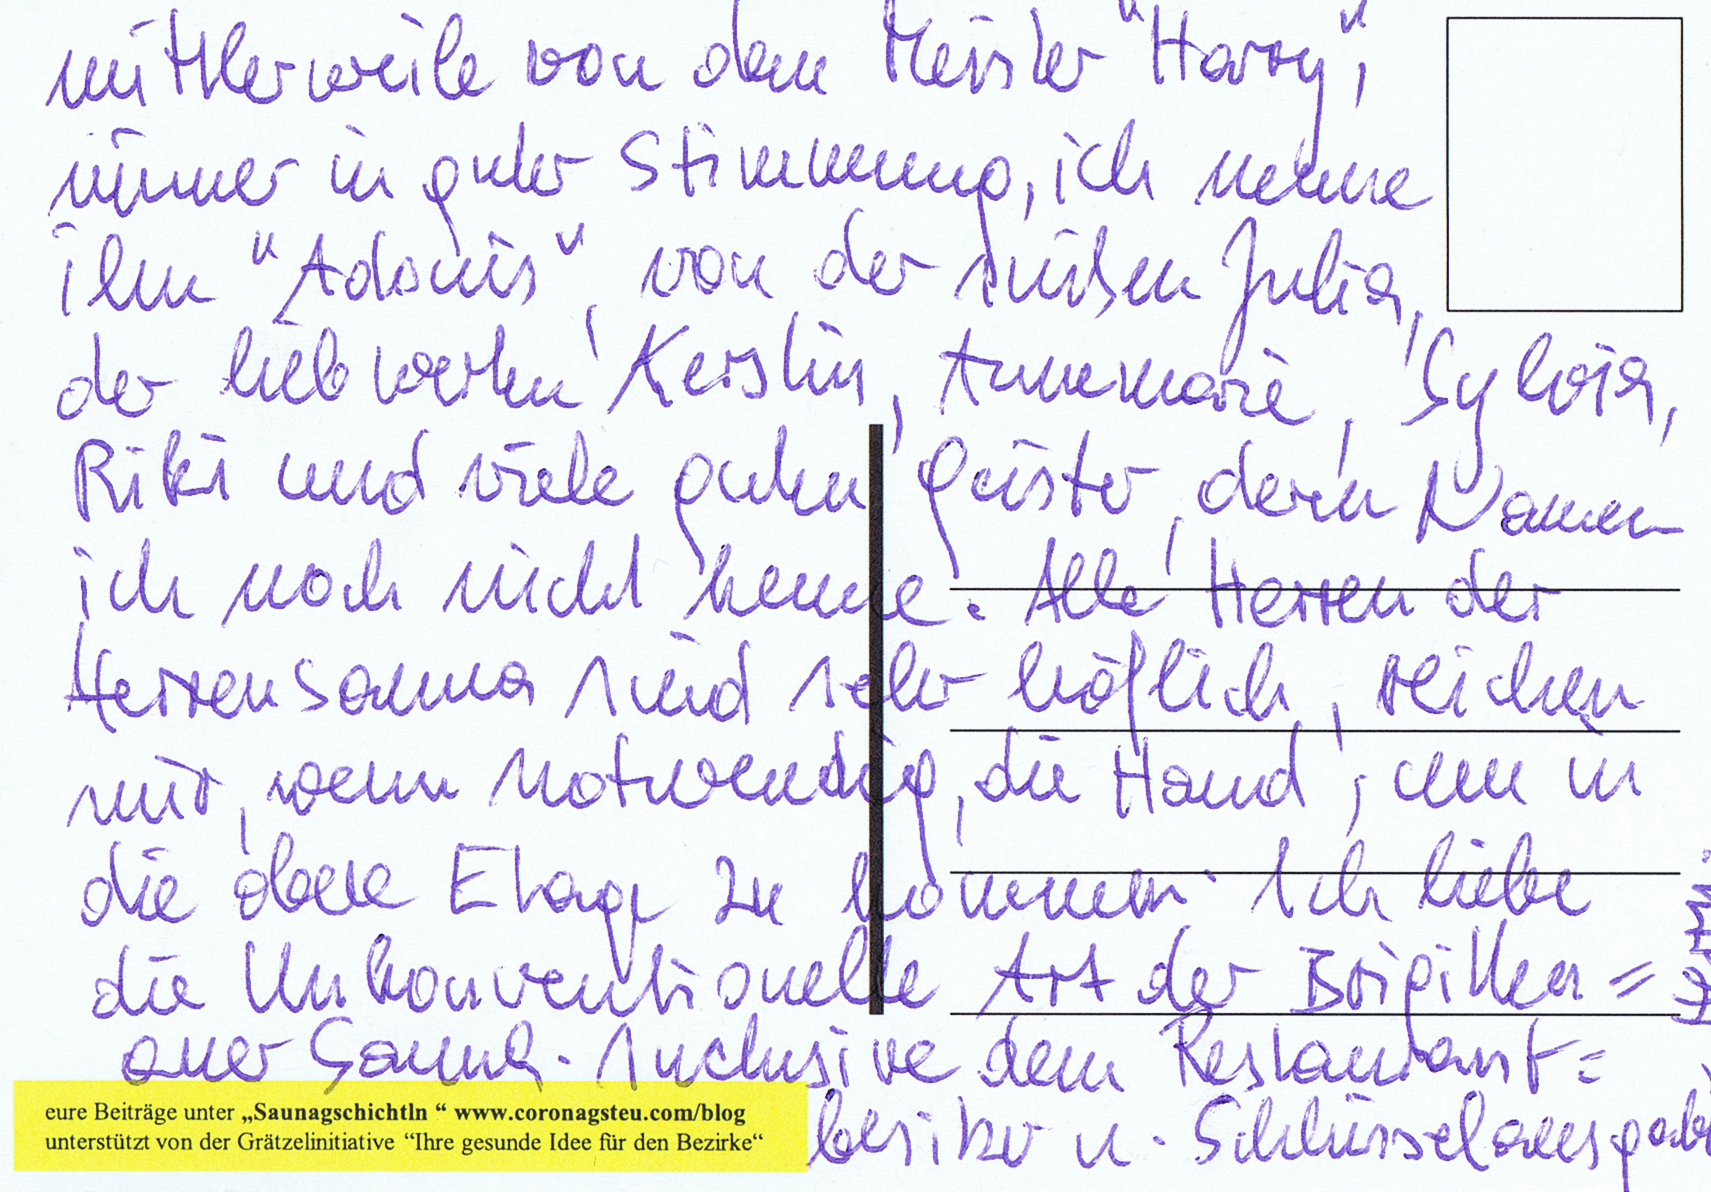 mittlerweile von dem Meister "Harry",
immer in guter Stimmung, ich nenne
ihn "Adonis", von der süßen Julia,
der liebwerten Kerstin, Annemarie, Sylvia,
Riki und viele guten Geister, deren Namen
ich noch nicht kenne. Alle Herren der
Herrensauna sind sehr höflich, reichen
mir, wenn notwendig, die Hand, um in
die obere Etage zu kommen. Ich liebe
die Unkonventionelle Art der Brigitten=
auer Sauna. Inclusive dem Restaurant=
besitzer u. Schlüsselausgabe
eure Beiträge unter „Saunagschichtln “ www.coronagsteu.com/blog
unterstützt von der Grätzelinitiative “Ihre gesunde Idee für den Bezirke“